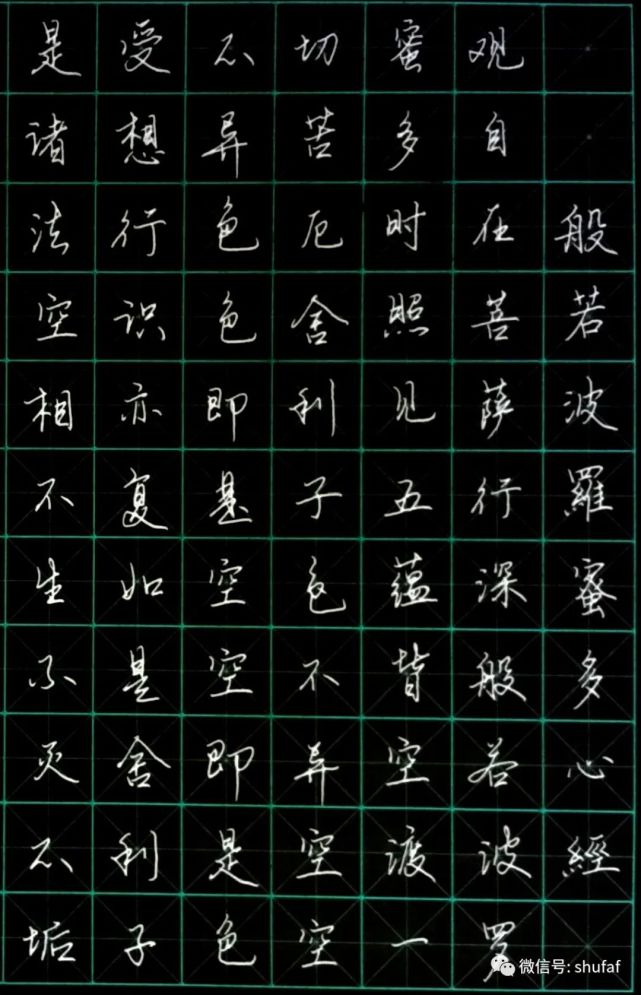 般若波羅蜜多心經
观自在菩萨行深般若波罗
蜜多时照见五蕴皆空渡一
切苦厄舍利子色不异空空
不异色色即是空空即是色
受想行识亦复如是舍利子
是诸法空相不生不灭不垢
微信号: shufaf